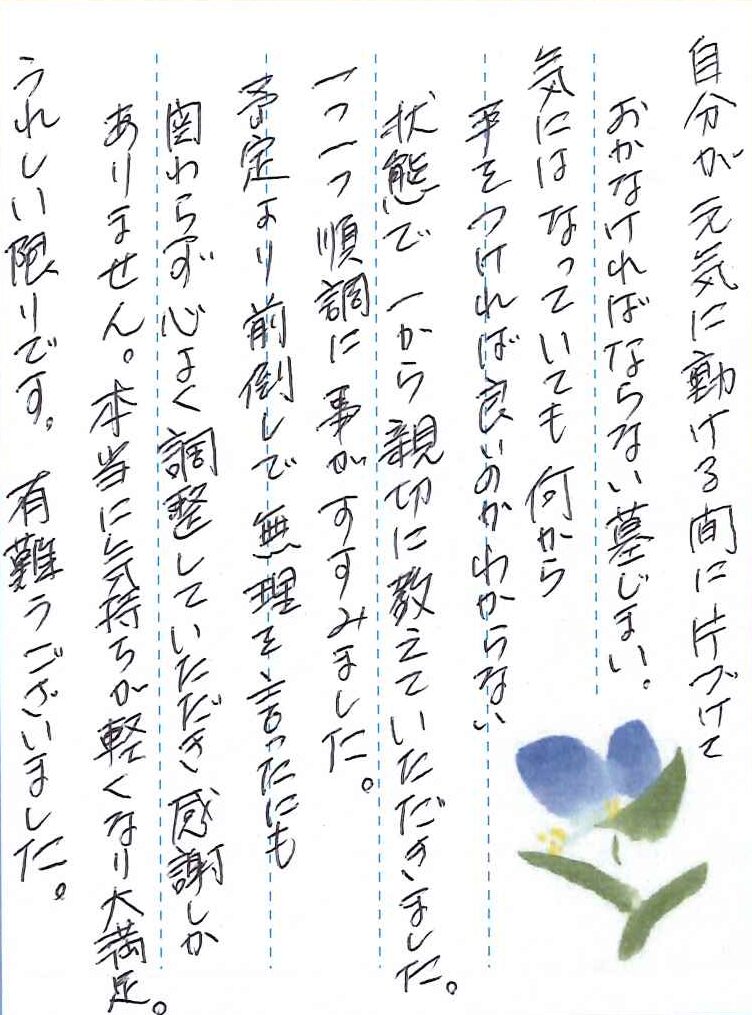 自分が元気に動ける間に片づけて
おかなければならない墓じまい。
気にはなっていても何から
手をつければ良いのかわからない
状態で一から親切に教えていただきました。
一つ一つ順調に事がすすみました。
予定より前倒しで無理を言ったにも
関わらず心よく調整していただき感謝しか
ありません。本当に気持ちが軽くなり大満足。
うれしい限りです。有難うございました。